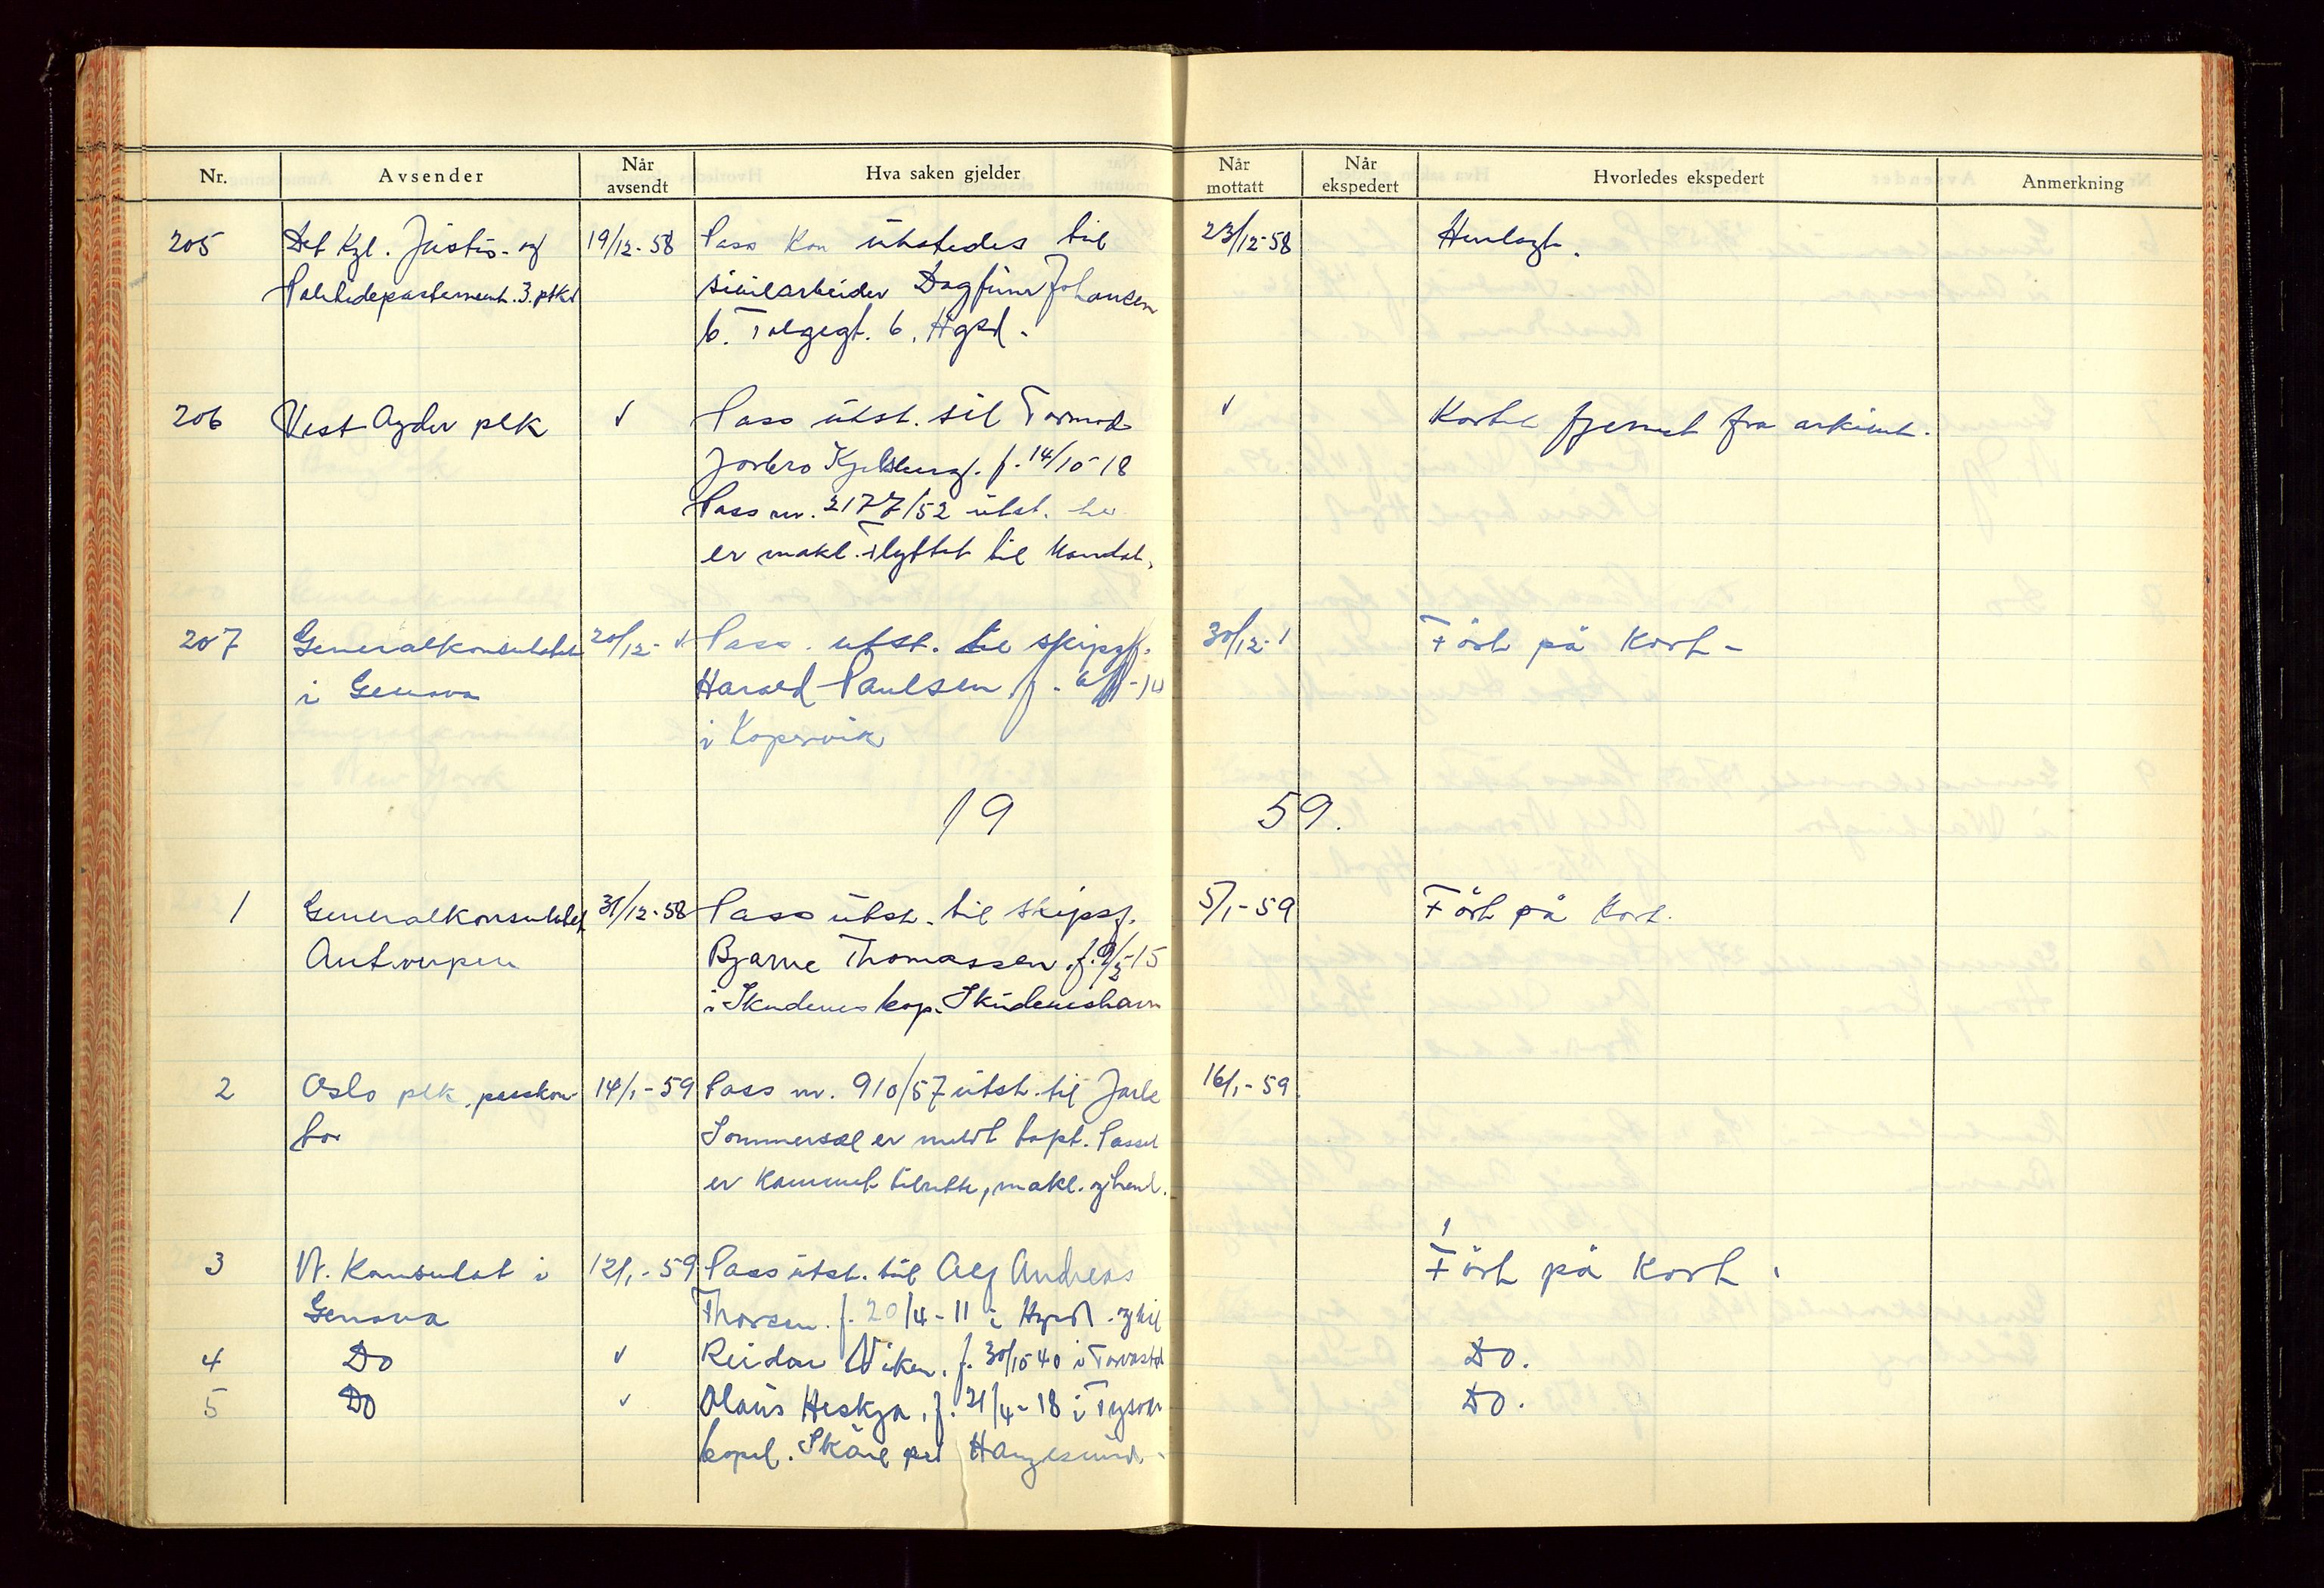 Nr.
Avsender
Når avsendt
Hva saken gjelder
Når mottatt
Når ekspedert
Hvorledes ekspedert
Anmerkning
205 Det Kgl. Justis- og 19/12-58 Pass kan utstedes til 23/12-58 Henlagt.
Politidepartement. 3. pktr sivilarbeider Dagfinn Johansen
b. Tolgegt. 6, Hgsd.
206 Vest Agder plk √ Pass utst. til Tormod √ Kortet fjernet fra arkivet.
Kjellsberg. f. 14/10-18
Pass nr. 2177/52 utst. her
er makl. Flyttet til Mandal.
207 Generalkonsulatet 20/12- √ Pass. utst. til skipsf. 30/12-
Ført på kort -
i Genova Harald Paulsen f.
i Kopervik
19 59.
1 Generalkonsulatet 31/12-58 Pass utst. til skipsf. 5/1-59 Ført på kort.
Antwerpen Bjarne Thomassen. f. 9/5-15
i Skudenes bop. Skudeneshavn
2 Oslo plk. passkon- 14/1-59 Pass nr. 910/57 utst. til Jarle 16/1-59
tor Sommersel er meldt tapt. Passet
er kommet tilrette, makl. og henl.
3 N. Konsulat i 12/1-59 Pass utst. til Alf Andreas Ført på kort.
Genova Thorsen. f. 20/4-11 i Hgsd. og til
4 Do √ Reidar Viken. f. 30/10 40 i Torvastad Do.
5 Do √ Olaus Heskja, f. 21/4-18 i Tysvær Do.
bopel. Skåre pr Haugesund.